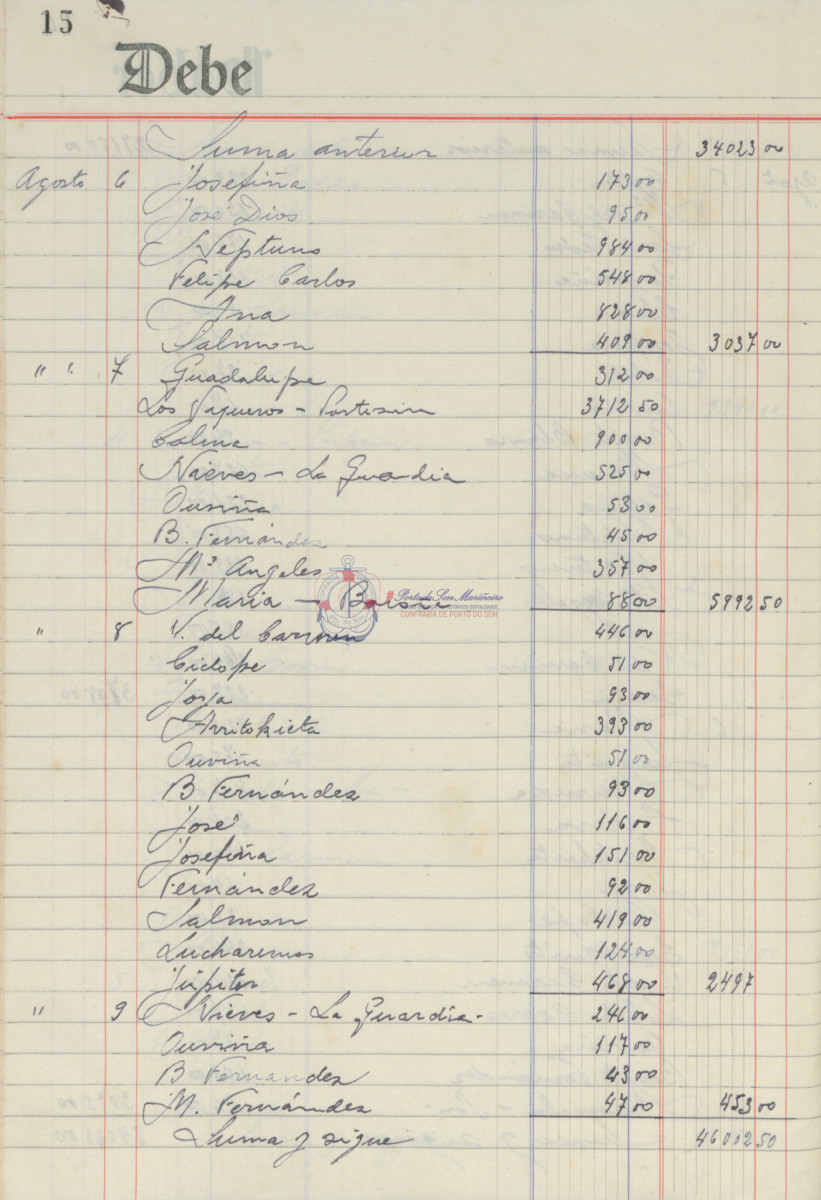 15
Debe
Suma anterior 34023 00
Agosto 6 Josefiña 173 00
José Dios 95 00
Neptuno 984 00
Felipe Carlos 548 00
Ana 828 00
Salmon 409 00 3037 00
" " 7 Guadalupe 312 00
Los Viqueros - Portosin 3712 50
Calma 900 00
Nieves - La Guardia 525 00
Ouviña 53 00
B. Fernández 45 00
Mª Angeles 357 00
Maria - 88 00 5992 50
" 8 V. del Carmen 446 00
Ciclope 51 00
Joya 93 00
Arritokieta 393 00
Ouviña 51 00
B Fernández 93 00
José 116 00
Josefiña 151 00
Fernández 92 00
Salmon 419 00
Lucharemos 124 00
Júpiter 468 00 2497
" 9 Nieves - La Guardia - 246 00
Ouviña 117 00
B Fernandez 43 00
M. Fernández 47 00 453 00
Suma y sigue 46002 50
#Porto do Son Mariñeiro
CONFRARÍA DE PORTO DO SON